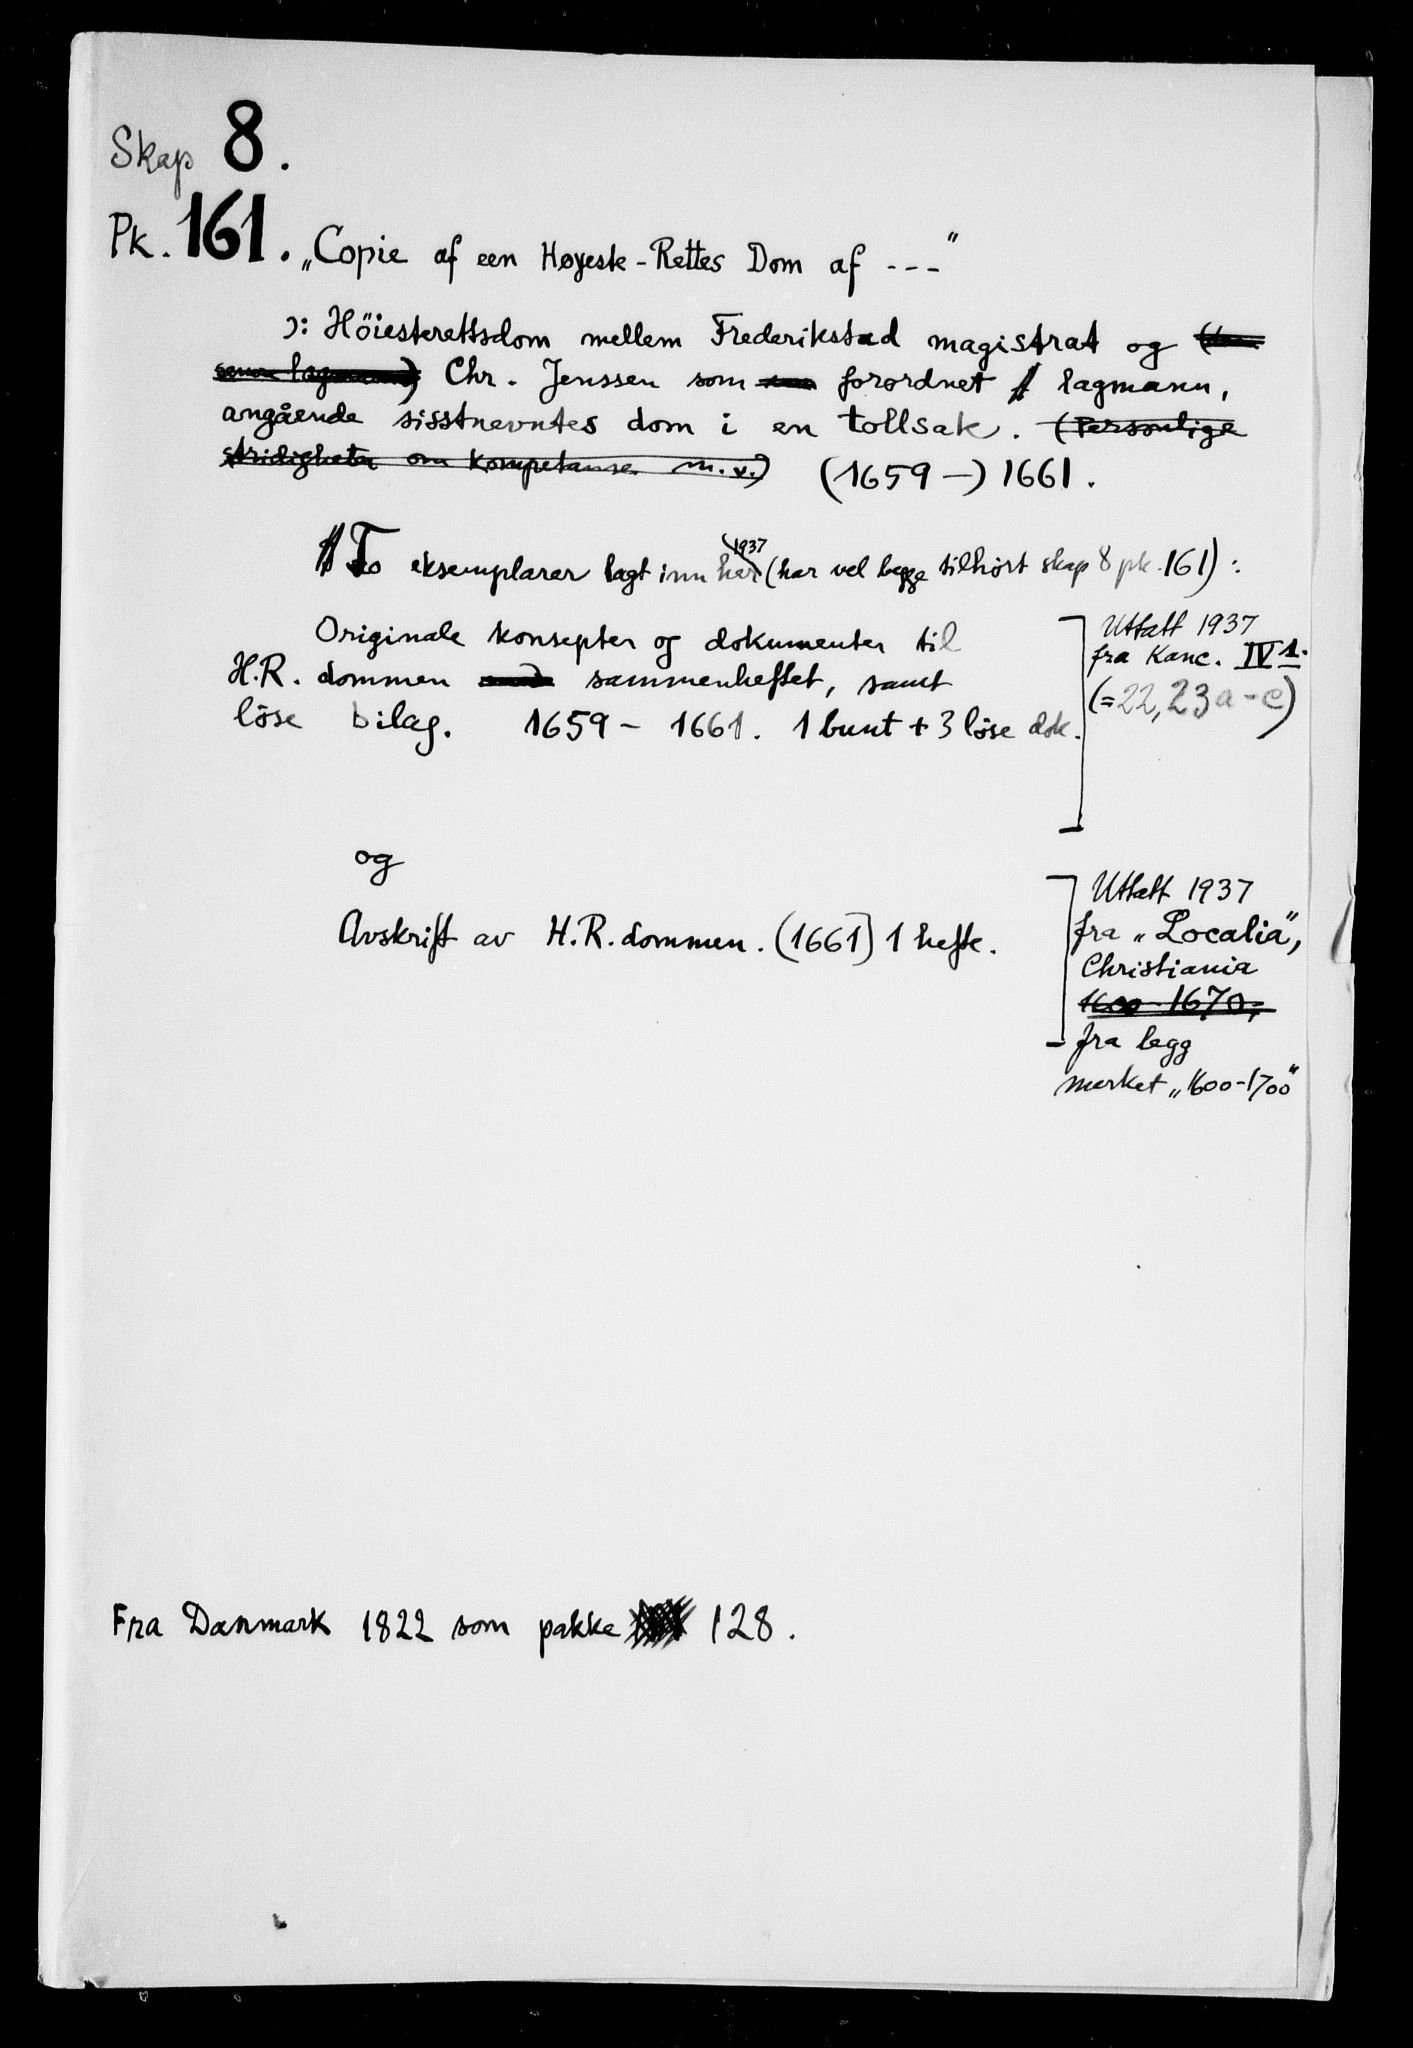 Skap 8.
Pk. 161. „Copie af een Høyeste-Rettes Dom af ---"
ɔ: Höiesterettsdom mellem Frederikstad magistrat og (den
senere lagmann) Chr. Jenssen som forordnet lagmann,
angående sisstnevntes dom i en tollsak. (Personlige
stridigheter om kompetanse m.v.) (1659-) 1661.
To eksemplarer lagt inn her 1937 (har vel begge tilhört skap 8 pk. 161):
Originale konsepter og dokumenter til
H.R. dommen sammenheftet, samt
löse bilag. 1659 - 1661. 1 bunt + 3 löse dok.
Uttatt 1937
fra Kanc. IV 1.
(=22, 23a-c)
og
Avskrift av H.R. dommen. (1661) 1 hefte.
Uttatt 1937
fra „Localia",
Christiania
1600-1670,
fra legg
merket „1600-1700"
Fra Danmark 1822 som pakke 128.